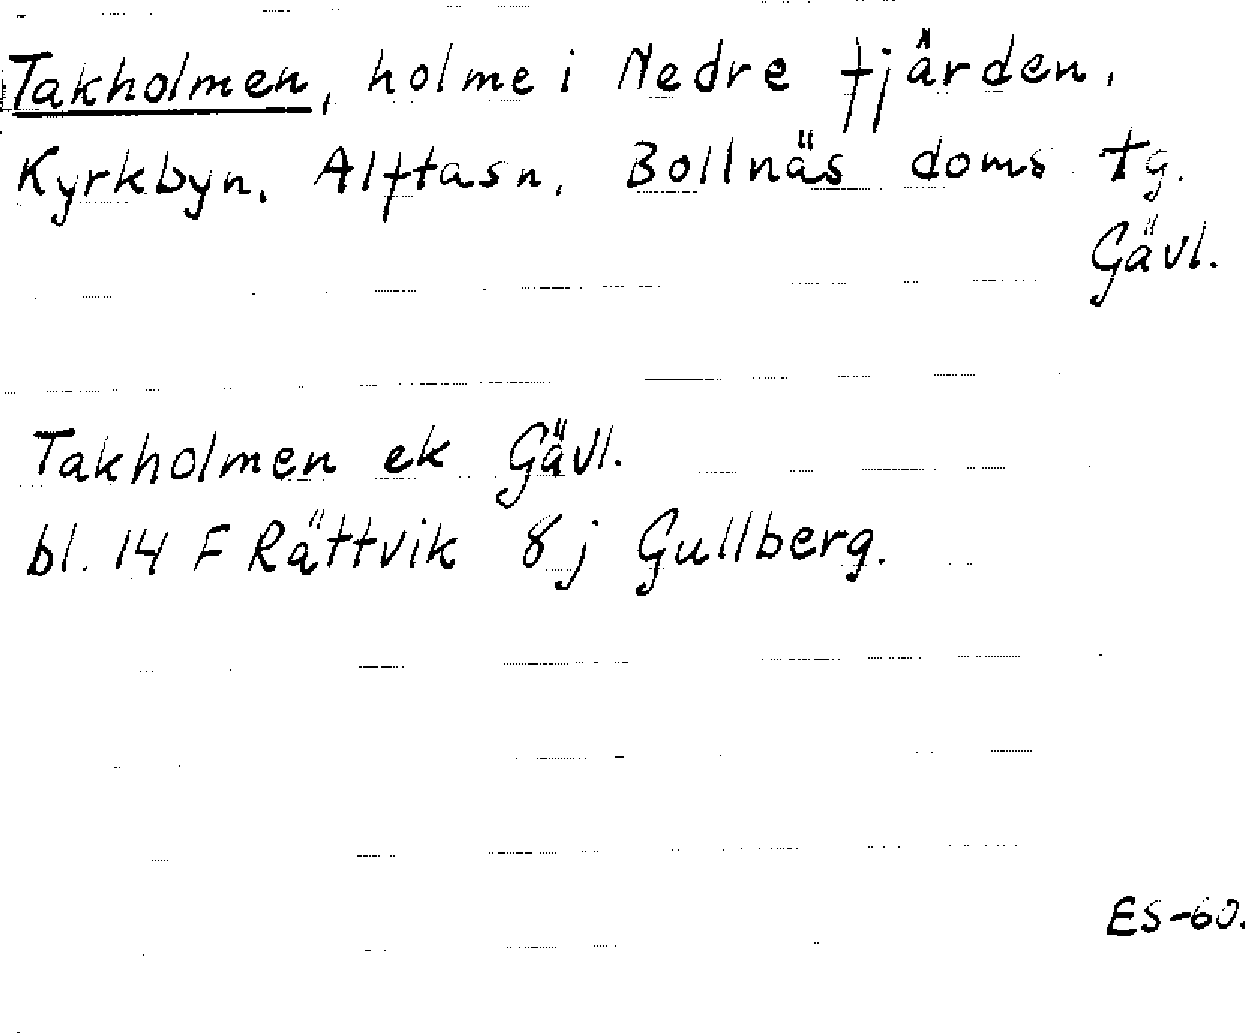 Takholmen, holme i Nedre fjärden,
Kyrkbyn, Alftasn, Bollnäs doms tg.
Gävl.
Takholmen ek Gävl.
bl. 14 F Rättvik 8 j Gullberg.
ES-60.